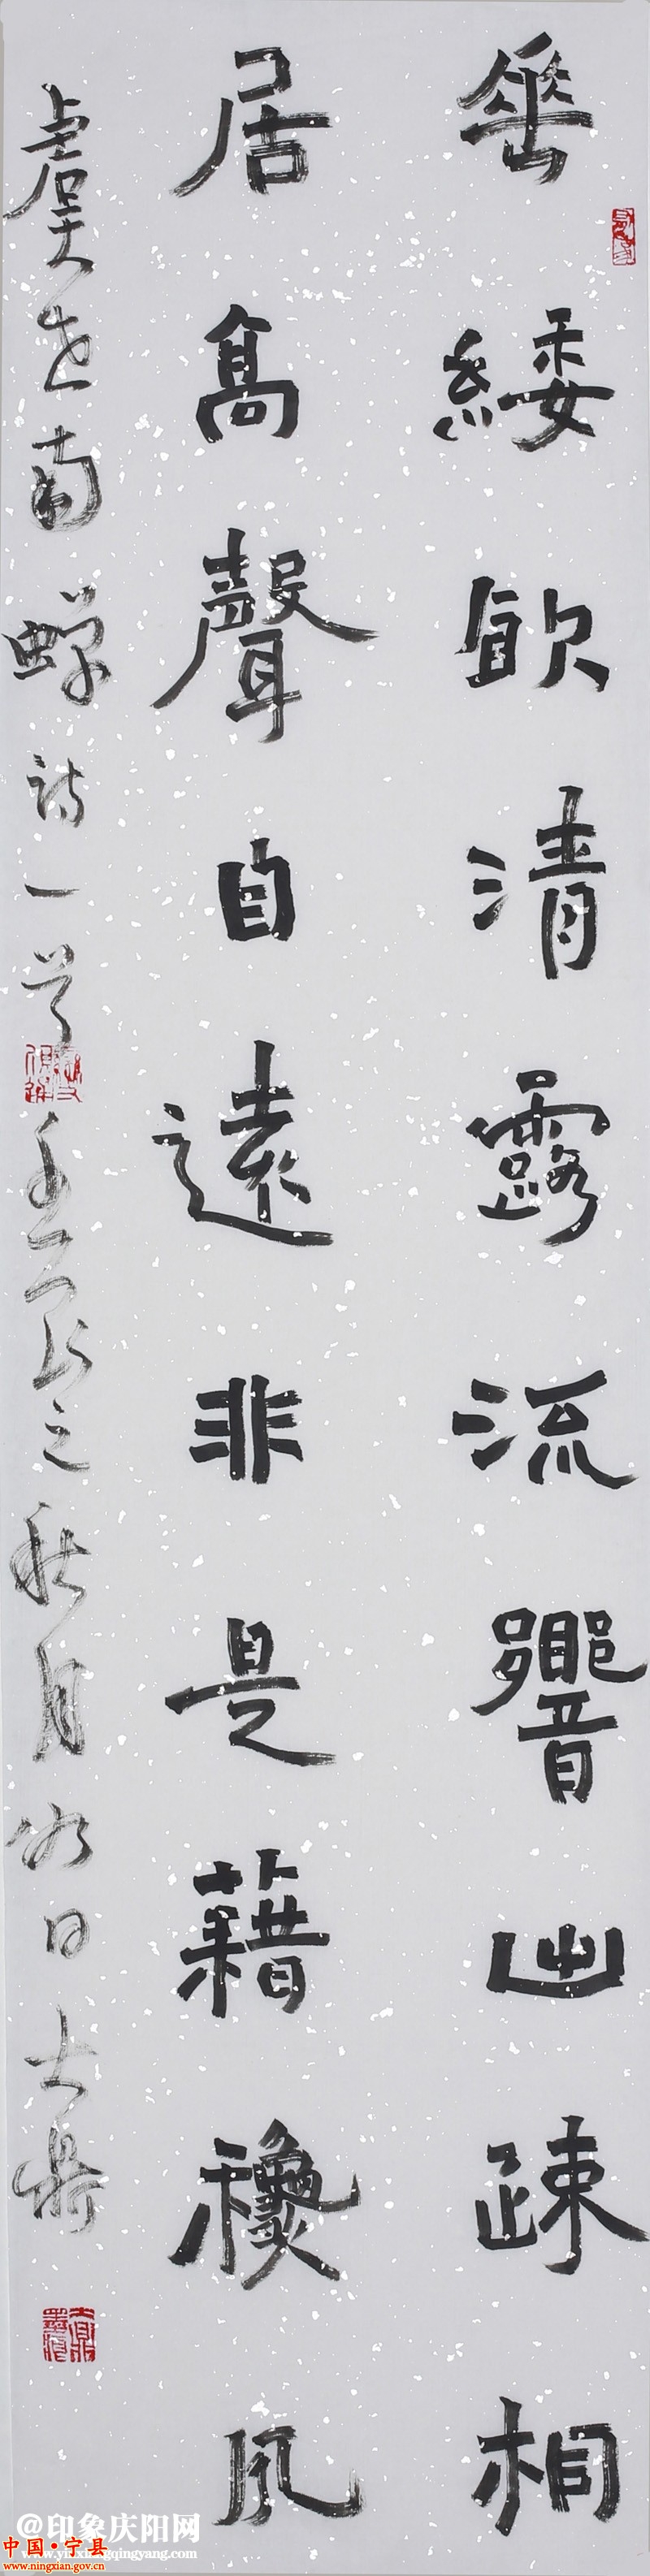 垂緌飲清露流響出疎桐
居高聲自遠非是藉𥤛風
虞世南蟬詩一首 之秋月 日大鼎
@印象庆阳网
www.yinxiangqingyang.com
中国·宁县
www.ningxian.gov.cn